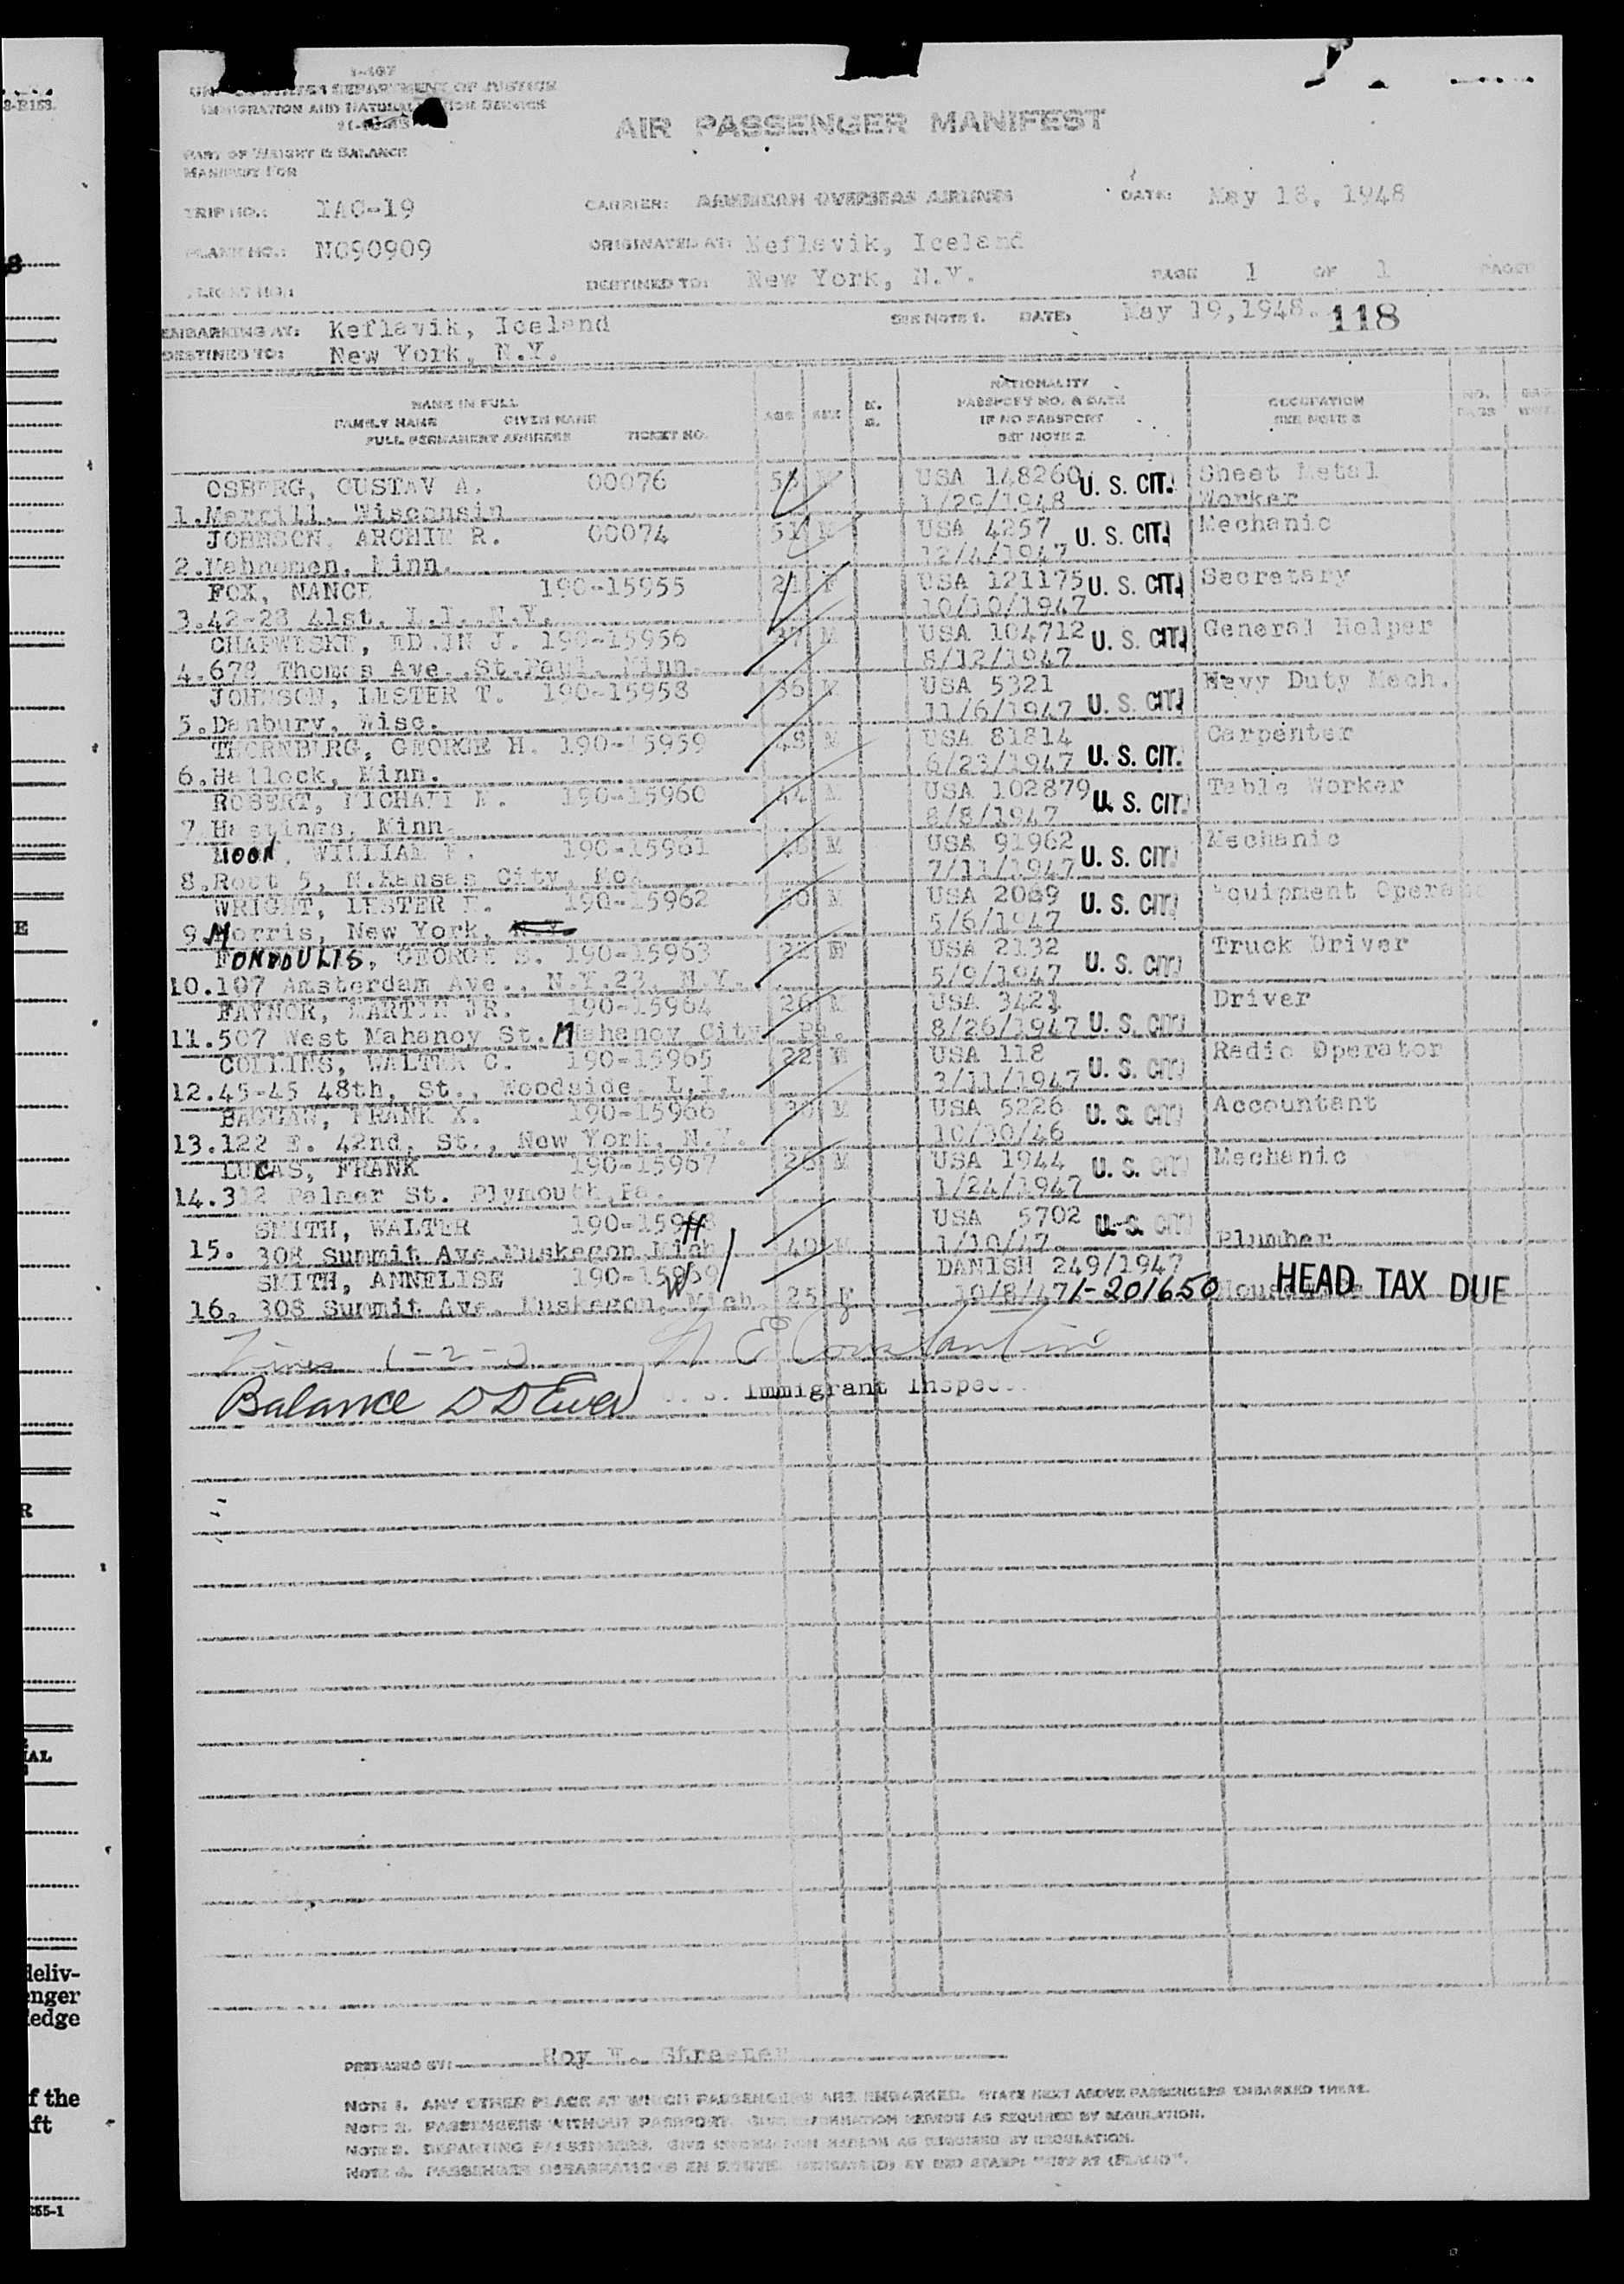 I-467
UNITED STATES DEPARTMENT OF JUSTICE
IMMIGRATION AND NATURALIZATION SERVICE
AIR PASSENGER MANIFEST
PART OF WEIGHT & BALANCE
MANIFEST FOR
TRIP NO.: IAO-19 CARRIER: AMERICAN OVERSEAS AIRLINES DATE: May 18, 1948
PLANE NO.: NC90909 ORIGINATED AT: Keflavik, Iceland
FLIGHT NO.: DESTINED TO: New York, N.Y. PAGE 1 OF 1 PAGES
EMBARKING AT: Keflavik, Iceland SEE NOTE 1. DATE: May 19, 1948. 118
DESTINED TO: New York, N.Y.
NAME IN FULL
FAMILY NAME GIVEN NAME
FULL PERMANENT ADDRESS TICKET NO.
AGE SEX
NATIONALITY
PASSPORT NO. & DATE
IF NO PASSPORT
SEE NOTE 2
OCCUPATION
SEE NOTE 3
NO. BAGS
OSBERG, GUSTAV A. 00076 USA 148260 U. S. CIT. Sheet Metal
1. Merrill, Wisconsin 1/29/1948 Worker
JOHNSON, ARCHIE R. 00074 51 M USA 4257 U. S. CIT. Mechanic
2. Mahnomen, Minn. 12/4/1947
FOX, NANCE 190-15955 21 F USA 121175 U. S. CIT. Secretary
3. 42-28 41st. L.I. N.Y. 10/10/1947
CHAPWESKE, EDWIN J. 190-15956 M USA 104712 U. S. CIT. General Helper
4. 678 Thomas Ave. St.Paul, Minn. 8/12/1947
JOHNSON, LESTER T. 190-15958 36 M USA 5321 Hevy Duty Mech.
5. Danbury, Wisc. 11/6/1947 U. S. CIT.
THORNBERG, GEORGE H. 190-15959 48 M USA 81814 Carpenter
6. Hallock, Minn. 6/23/1947 U. S. CIT.
ROBERT, MICHAEL 190-15960 44 M USA 102879 U. S. CIT. Table Worker
7. Hastings, Minn. 8/8/1947
MOON, WILLIAM 190-15961 46 M USA 91962 Mechanic
8. Rout 5, N.Kansas City, Mo. 7/11/1947 U. S. CIT.
WRIGHT, LESTER 190-15962 50 M USA 2069 U. S. CIT. Equipment Opera
9. Morris, New York, 5/6/1947
FONDOULIS, GEORGE S. 190-15963 22 M USA 2132 Truck Driver
10. 107 Amsterdam Ave., N.Y.23, N.Y. 5/9/1947 U. S. CIT.
FAYNOR, MARTIN JR. 190-15964 26 M USA 3421 Driver
11. 507 West Mahanoy St. Mahanoy City Pa. 8/26/1947 U. S. CIT.
COLLINS, WALTER C. 190-15965 22 M USA 118 Radio Operator
12. 45-45 48th. St., Woodside, L.I. 3/11/1947 U. S. CIT.
FRANK X. 190-15966 M USA 5226 U. S. CIT. Accountant
13. 122 E. 42nd. St., New York, N.Y. 10/30/46
LUCAS, FRANK 190-15967 26 M USA 1944 U. S. CIT. Mechanic
14. 312 Palmer St. Plymouth, Pa. 1/24/1947
SMITH, WALTER 190-15968 H USA 5702 U. S. CIT.
15. 308 Summit Ave. Muskegon, Mich. 40 M 1/10/47 Plumber
SMITH, ANNELISE 190-15969 W DANISH 249/1947
16. 308 Summit Ave. Muskegon, Mich. 25 F 10/8/47 1-201650 HEAD TAX DUE
Lines 1-2-3
Balance U. S. Immigrant Inspec
PREPARED BY: Roy
NOTE 1. ANY OTHER PLACE AT WHICH PASSENGERS ARE EMBARKED. STATE NEXT ABOVE PASSENGERS EMBARKED THERE.
NOTE 2. PASSENGERS WITHOUT PASSPORT. GIVE INFORMATION HEREON AS REQUIRED BY REGULATION.
NOTE 3. DEPARTING PASSENGERS. GIVE INFORMATION HEREON AS REQUIRED BY REGULATION.
NOTE 4. PASSENGER DEBARKATIONS EN ROUTE INDICATE(D) BY RED STAMP: "OFF AT (PLACE)".
deliv-
enger
ledge
f the
ft
255-1